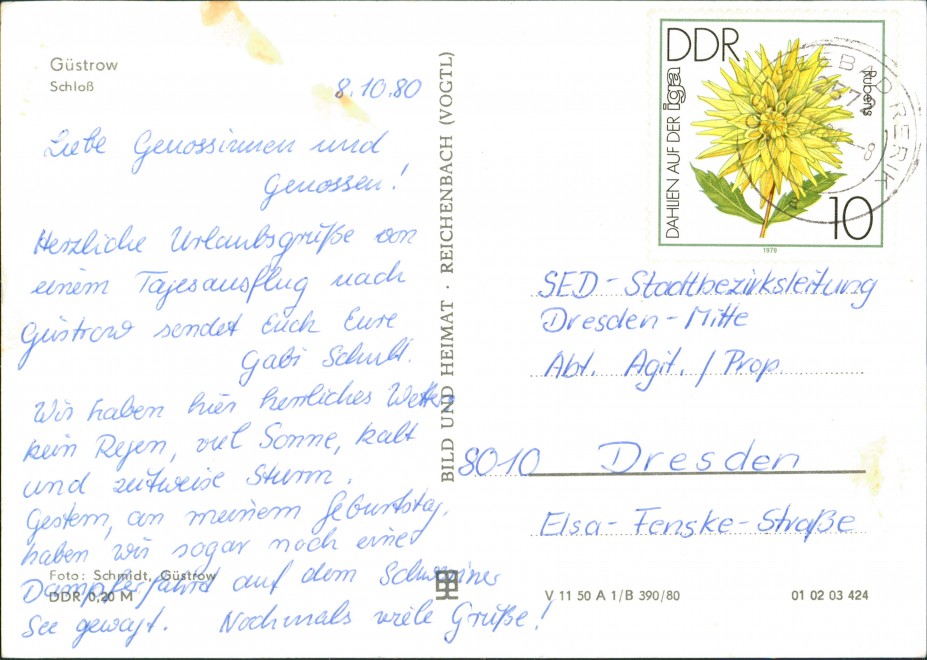 Güstrow
Schloß
8.10.80
Liebe Genossinnen und
Genossen!
Herzliche Urlaubsgrüße von
einem Tagesausflug nach
Güstrow sendet Euch Eure
Gabi
Wir haben hier herrliches Wetter
kein Regen, viel Sonne, kalt
und zeitweise Sturm.
Gestern, an meinem Geburtstag,
haben wir sogar noch eine
Dampferfahrt auf dem Schweriner
See gewagt. Nochmals viele Grüße!
Foto: Schmidt, Güstrow
DDR 0,20 M
BILD UND HEIMAT · REICHENBACH (VOGTL)
DDR
DAHLIEN AUF DER iga
Rubens
10
1979
OSTSEEBAD RERIK
SED-Stadtbezirksleitung
Dresden-Mitte
Abt. Agit./Prop.
8010 Dresden
Elsa-Fenske-Straße
V 11 50 A 1/B 390/80
01 02 03 424